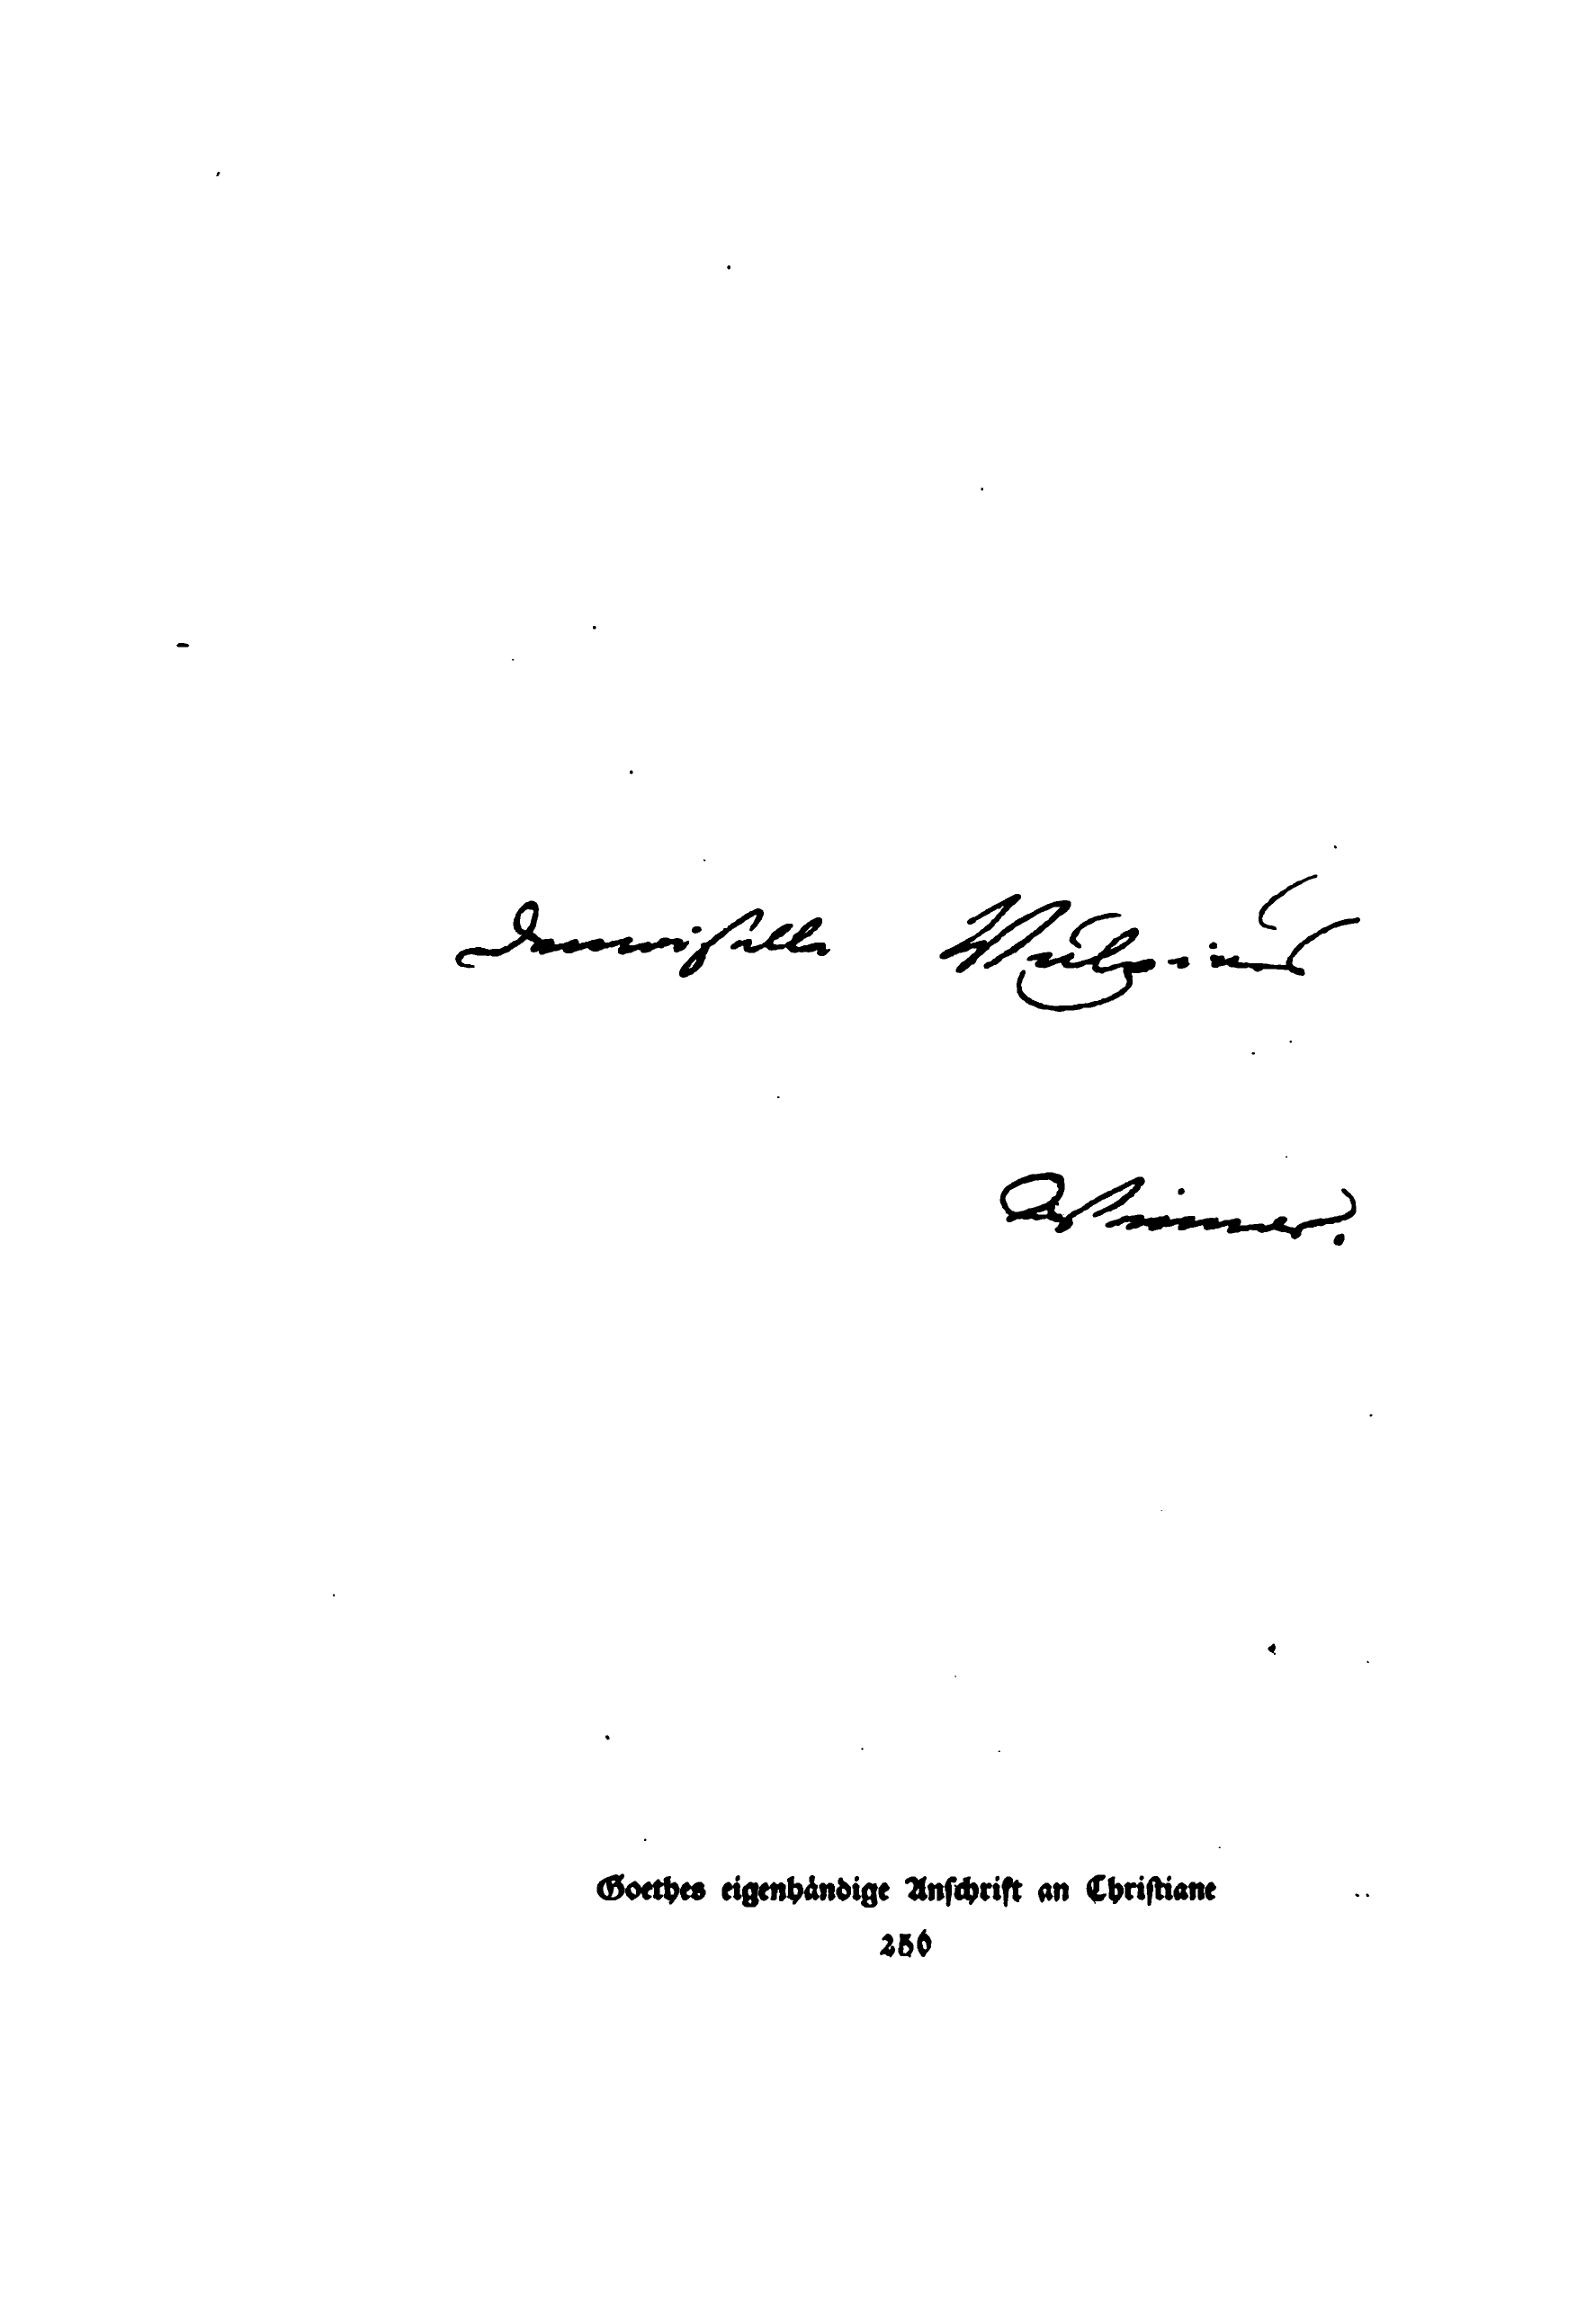 Demoiselle Vulpius
Weimar.
Goethes eigenhändige Anschrift an Christiane
256